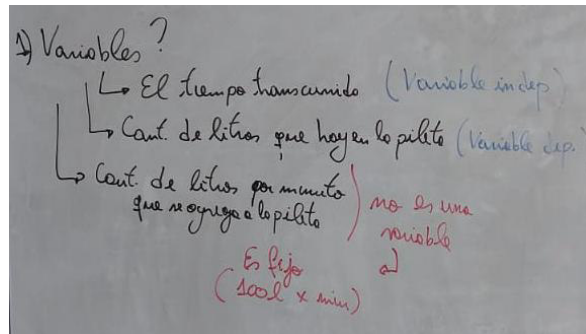 1) Variables?
↳ El tiempo transcurrido (Variable indep)
↳ Cant. de litros que hay en la pileta (Variable dep.
↳ Cant. de litros por minuto
que se agrega a la pileta
no es una
variable
Es fijo
(100l x min)